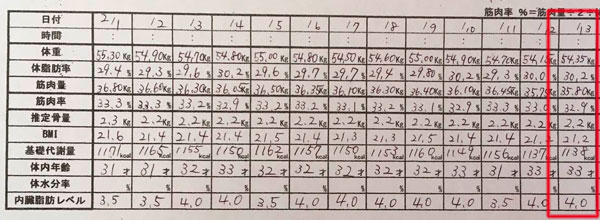 筋肉率 %=筋肉量÷2÷
日付 2/1 /2 /3 /4 /5 /6 /7 /8 /9 /10 /11 /13
時間 : : : : : : : : : : : : :
体重 55.30Kg 54.90Kg 54.70Kg 54.80Kg 55.00Kg 54.80Kg 54.50Kg 54.60Kg 55.00Kg 54.90Kg 54.70Kg 54.35Kg
体脂肪率 29.4% 29.3% 29.6% 30.2% 29.6% 29.7% 29.7% 29.4% 29.80% 30.2% 29.3% 30.0% 30.2%
筋肉量 36.80Kg 36.60Kg 36.30Kg 36.05Kg 36.50Kg 36.35Kg 36.10Kg 36.30Kg 36.40Kg 36.10Kg 36.45Kg 35.80Kg
筋肉率 33.3% 33.3% 33.2% 32.9% 33.2% 33.2% 33.1% 33.2% 33.1% 32.9% 33.3% 33.0% 32.9%
推定骨量 2.3Kg 2.2Kg 2.2Kg 2.2Kg 2.2Kg 2.2Kg 2.2Kg 2.2Kg 2.2Kg 2.2Kg 2.2Kg 2.2Kg 2.2Kg
BMI 21.6 21.4 21.4 21.4 21.5 21.4 21.3 21.3 21.5 21.4 21.4 21.2
基礎代謝量 1171kcal 1165kcal 1155kcal 1150kcal 1162kcal 1157kcal 1150kcal 1153kcal 1160kcal 1149kcal 1156kcal 1137kcal 1138kcal
体内年齢 31才 31才 32才 33才 32才 32才 32才 32才 32才 33才 31才 33才 33才
体水分率 % % % % % % % % % % % % %
内臓脂肪レベル 3.5 3.5 4.0 4.0 3.5 4.0 4.0 4.0 4.0 4.0 3.5 4.0 4.0